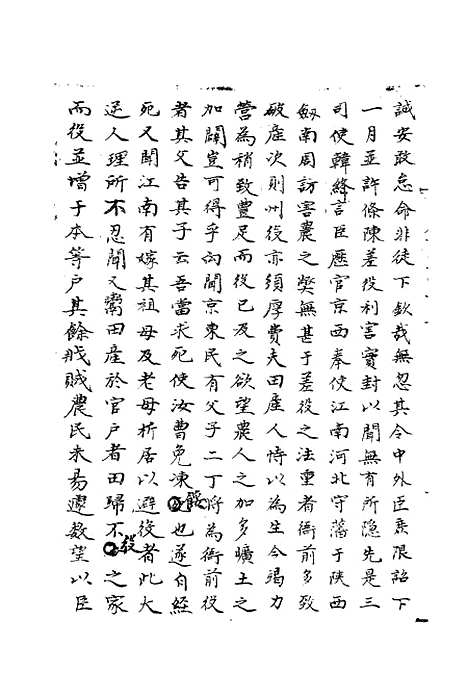 誠安敢忘命非徒下欽哉無忽其令中外臣庶限詔下
一月並許條陳差役利害實封以聞無有所隱先是三
司使韓絳言臣歷官京西奉使江南河北守藩于陝西
劒南周訪害農之獘無甚于差役之法重者衙前多致
破產次則州役亦須厚費夫田產人恃以為生今竭力
營為稍致豊足而役已及之欲望農人之加多曠土之
加闢豈可得乎向聞京東民有父子二丁將為衙前役
者其父告其子云吾當求死使汝曹免凍餒也遂自經
死又聞江南有嫁其祖母及老母析居以避役者此大
逆人理所不忍聞又鬻田產於官戶者田歸不役之家
而役並增于本等戶其餘戕賊農民未易遽數望以臣